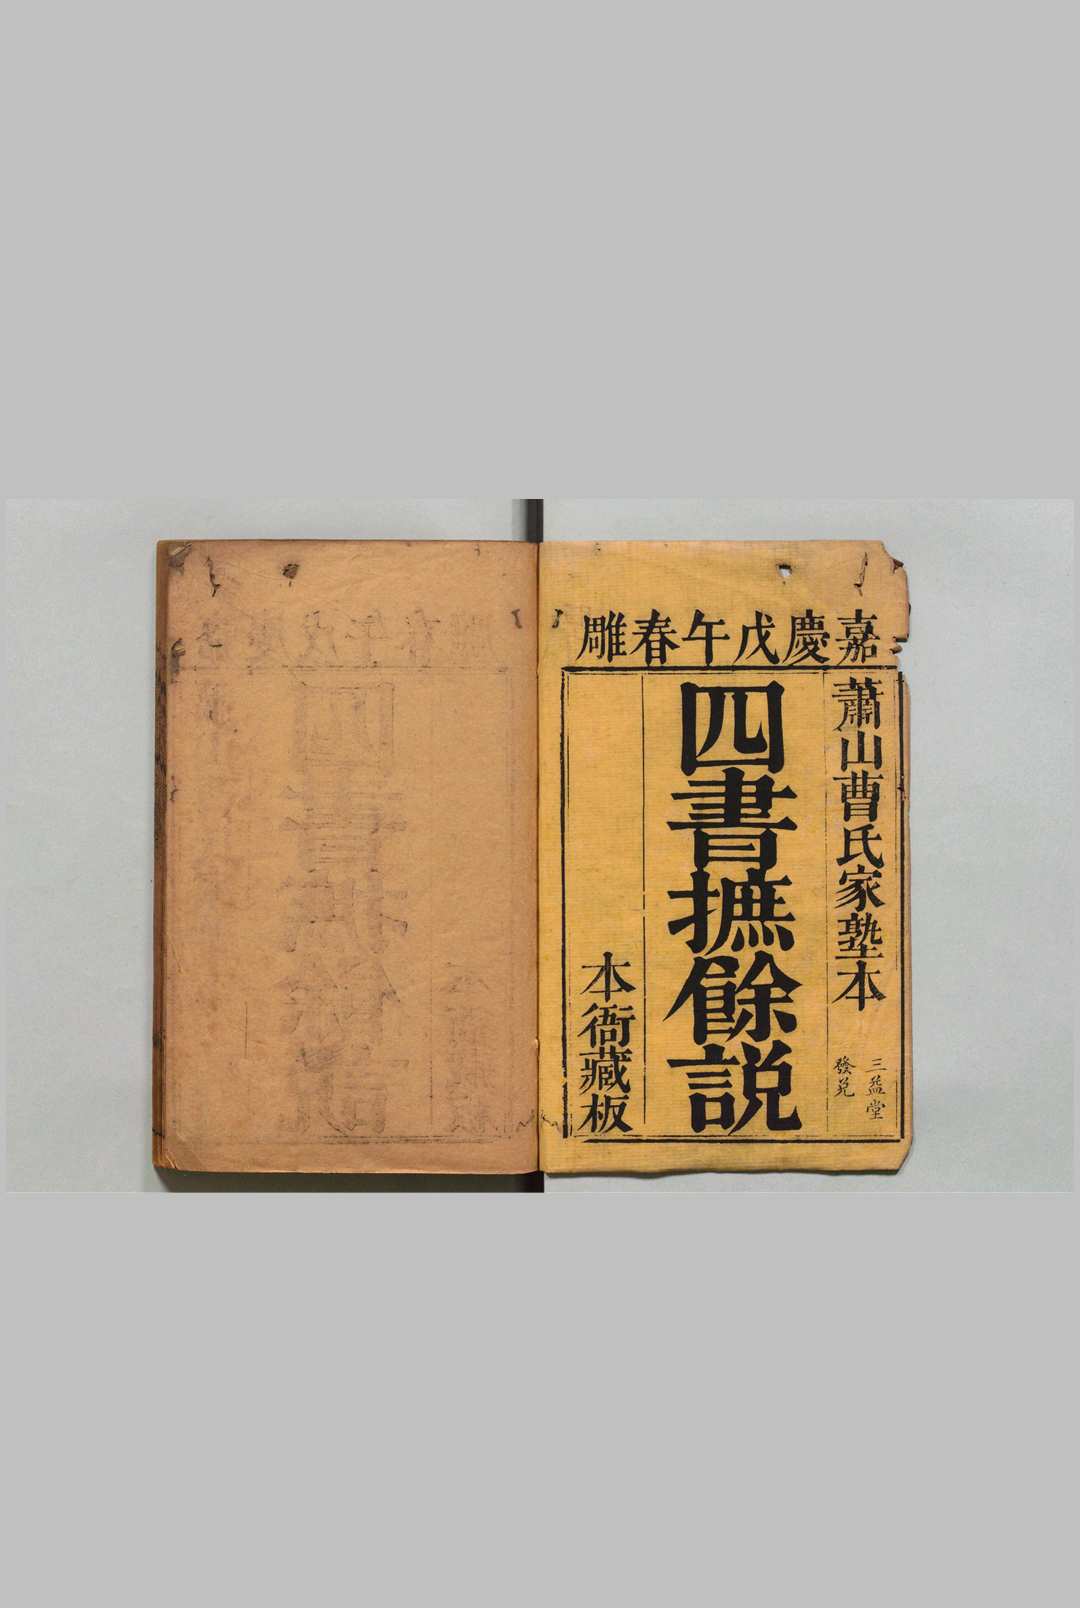 嘉慶戊午春雕
蕭山曹氏家塾本
三益堂
發兌
四書摭餘説
本衙藏板